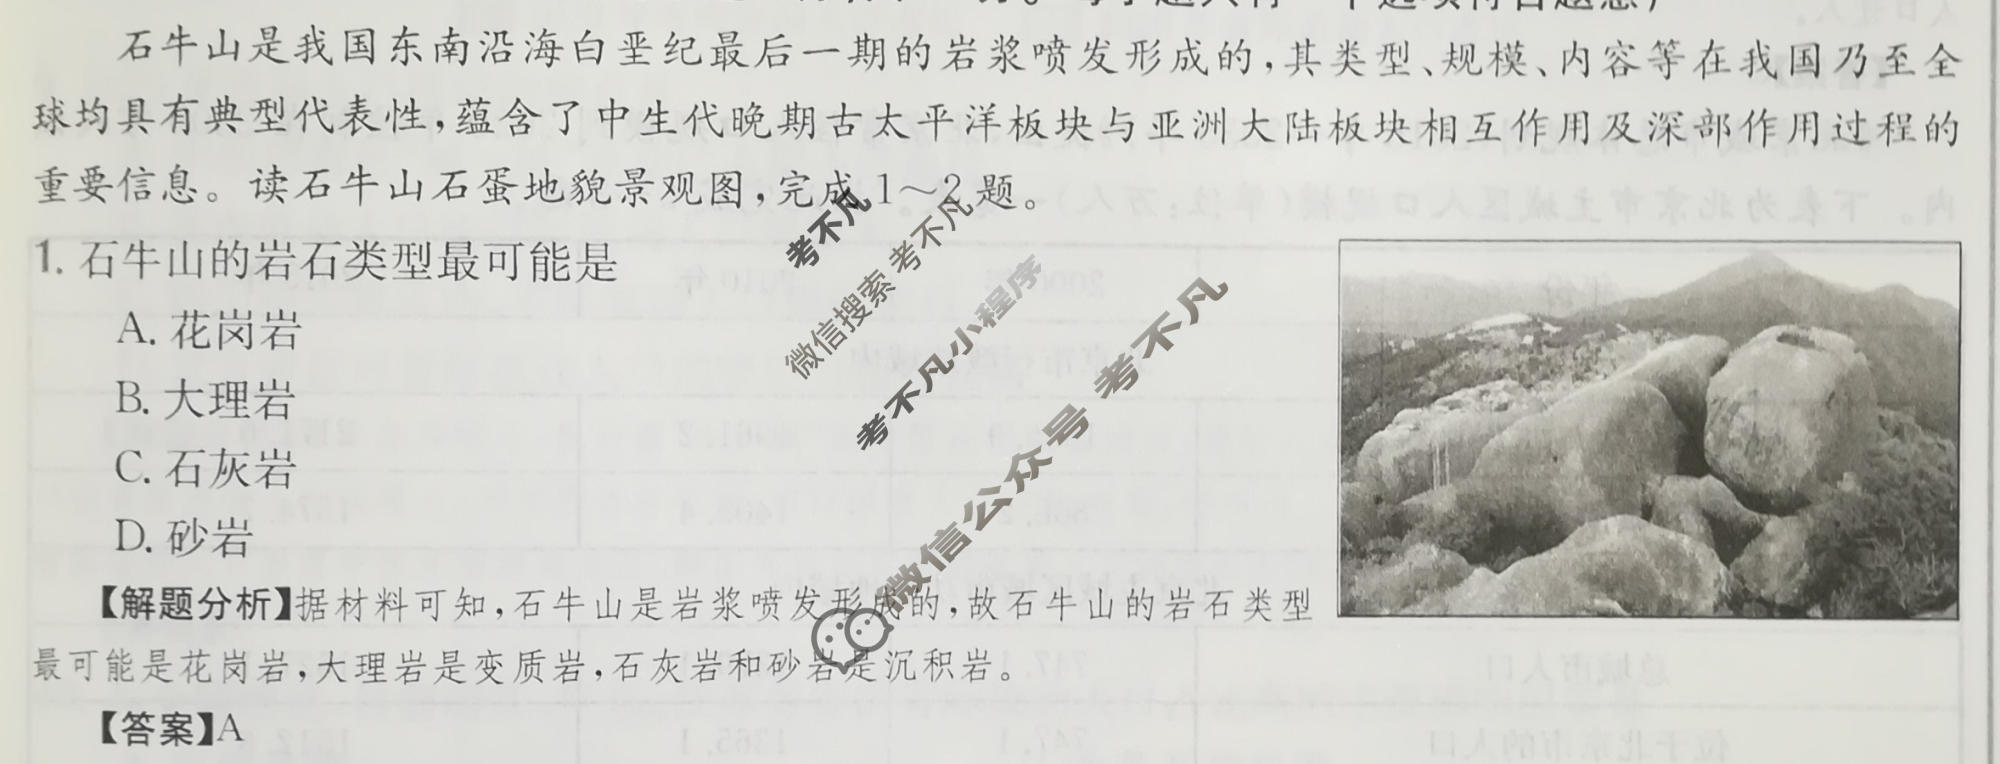 石牛山是我国东南沿海白垩纪最后一期的岩浆喷发形成的,其类型、规模、内容等在我国乃至全
球均具有典型代表性,蕴含了中生代晚期古太平洋板块与亚洲大陆板块相互作用及深部作用过程的
重要信息。读石牛山石蛋地貌景观图,完成1～2题。
1. 石牛山的岩石类型最可能是
A. 花岗岩
B. 大理岩
C. 石灰岩
D. 砂岩
【解题分析】据材料可知,石牛山是岩浆喷发形成的,故石牛山的岩石类型
最可能是花岗岩,大理岩是变质岩,石灰岩和砂岩是沉积岩。
【答案】A
考不凡
微信搜索 考不凡
考不凡小程序
微信公众号 考不凡